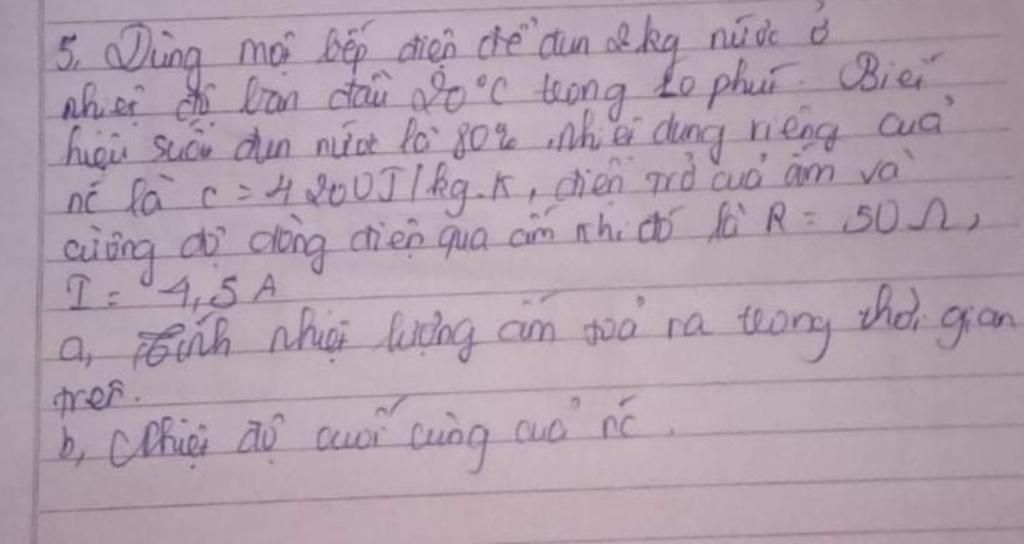 5. Dùng một bếp điện để đun 2kg nước ở
nhiệt độ ban đầu 20°C trong 10 phút. Biết
hiệu suất đun nước là 80%, nhiệt dung riêng của
nc là c = 4200J/kg.K, điện trở của ấm và
cường độ dòng điện qua ấm khi đó là R = 50Ω,
I = 4,5A
a, tính nhiệt lượng ấm toả ra trong thời gian
trên.
b, Nhiệt độ cuối cùng của nc.